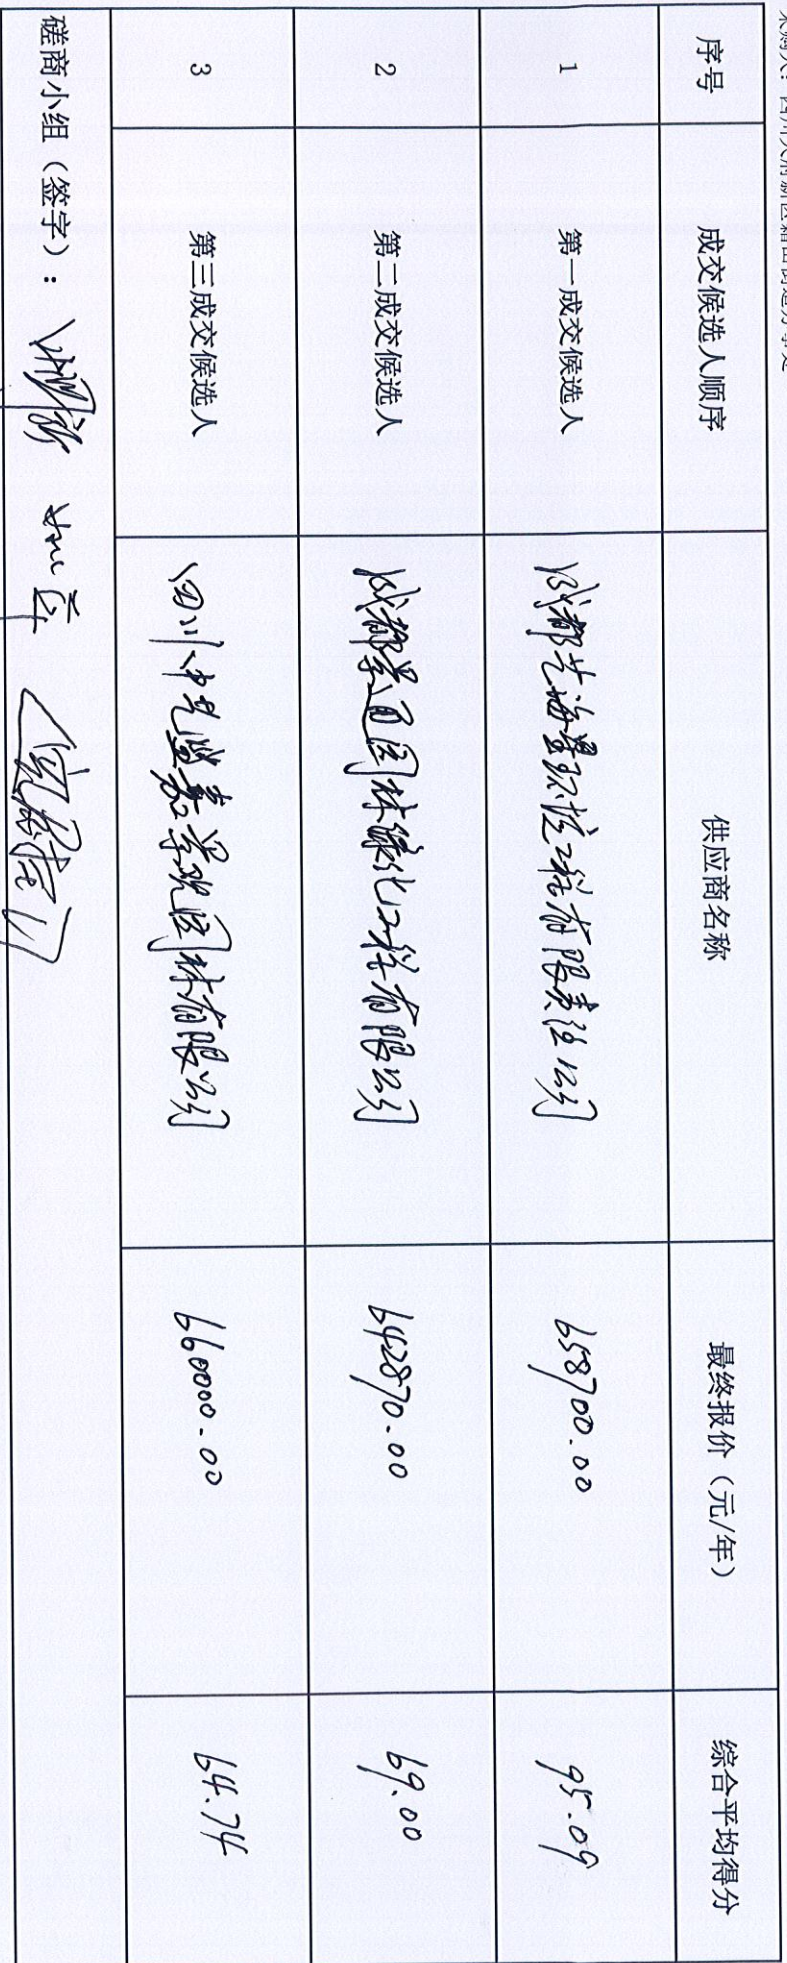 序号 成交候选人顺序 供应商名称 最终报价（元/年） 综合平均得分
1 第一成交候选人 成都艺海景环境工程有限责任公司 658700.00 95.09
2 第二成交候选人 成都景通园林绿化工程有限公司 642870.00 69.00
3 第三成交候选人 四川中艺盛嘉景观园林有限公司 660000.00 64.74
磋商小组（签字）：